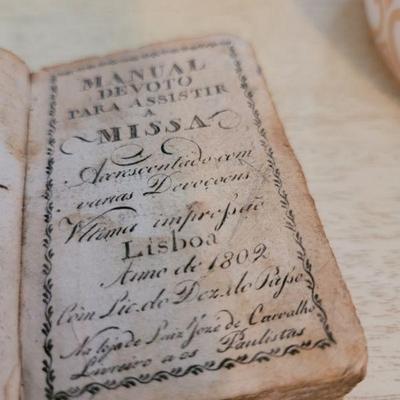 MANUAL
DEVOTO
PARA ASSISTIR
A
MISSA
Acrescentado com
varias Devoçoens
Vltima impressão
Lisboa
Anno de 1802
Com Lic. do Dez. do Passo
Na loja de Luiz Joze de Carvalho
Livreiro a os Paulistas